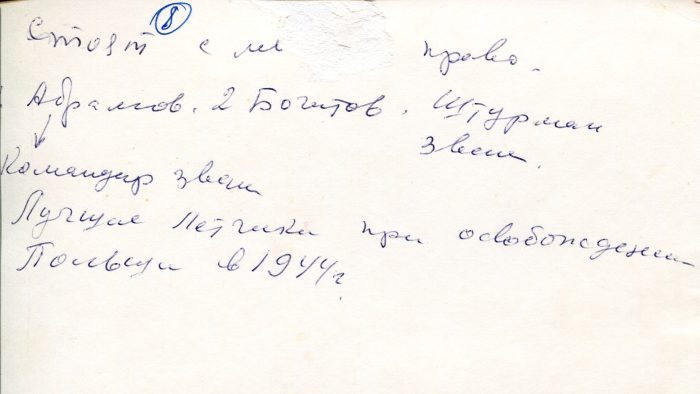 8
Стоят с ле право.
Абрамов. 2 Богатов. Штурман
звена.
Командир звена
Лучшие летчики при освобождении
Польши в 1944г.